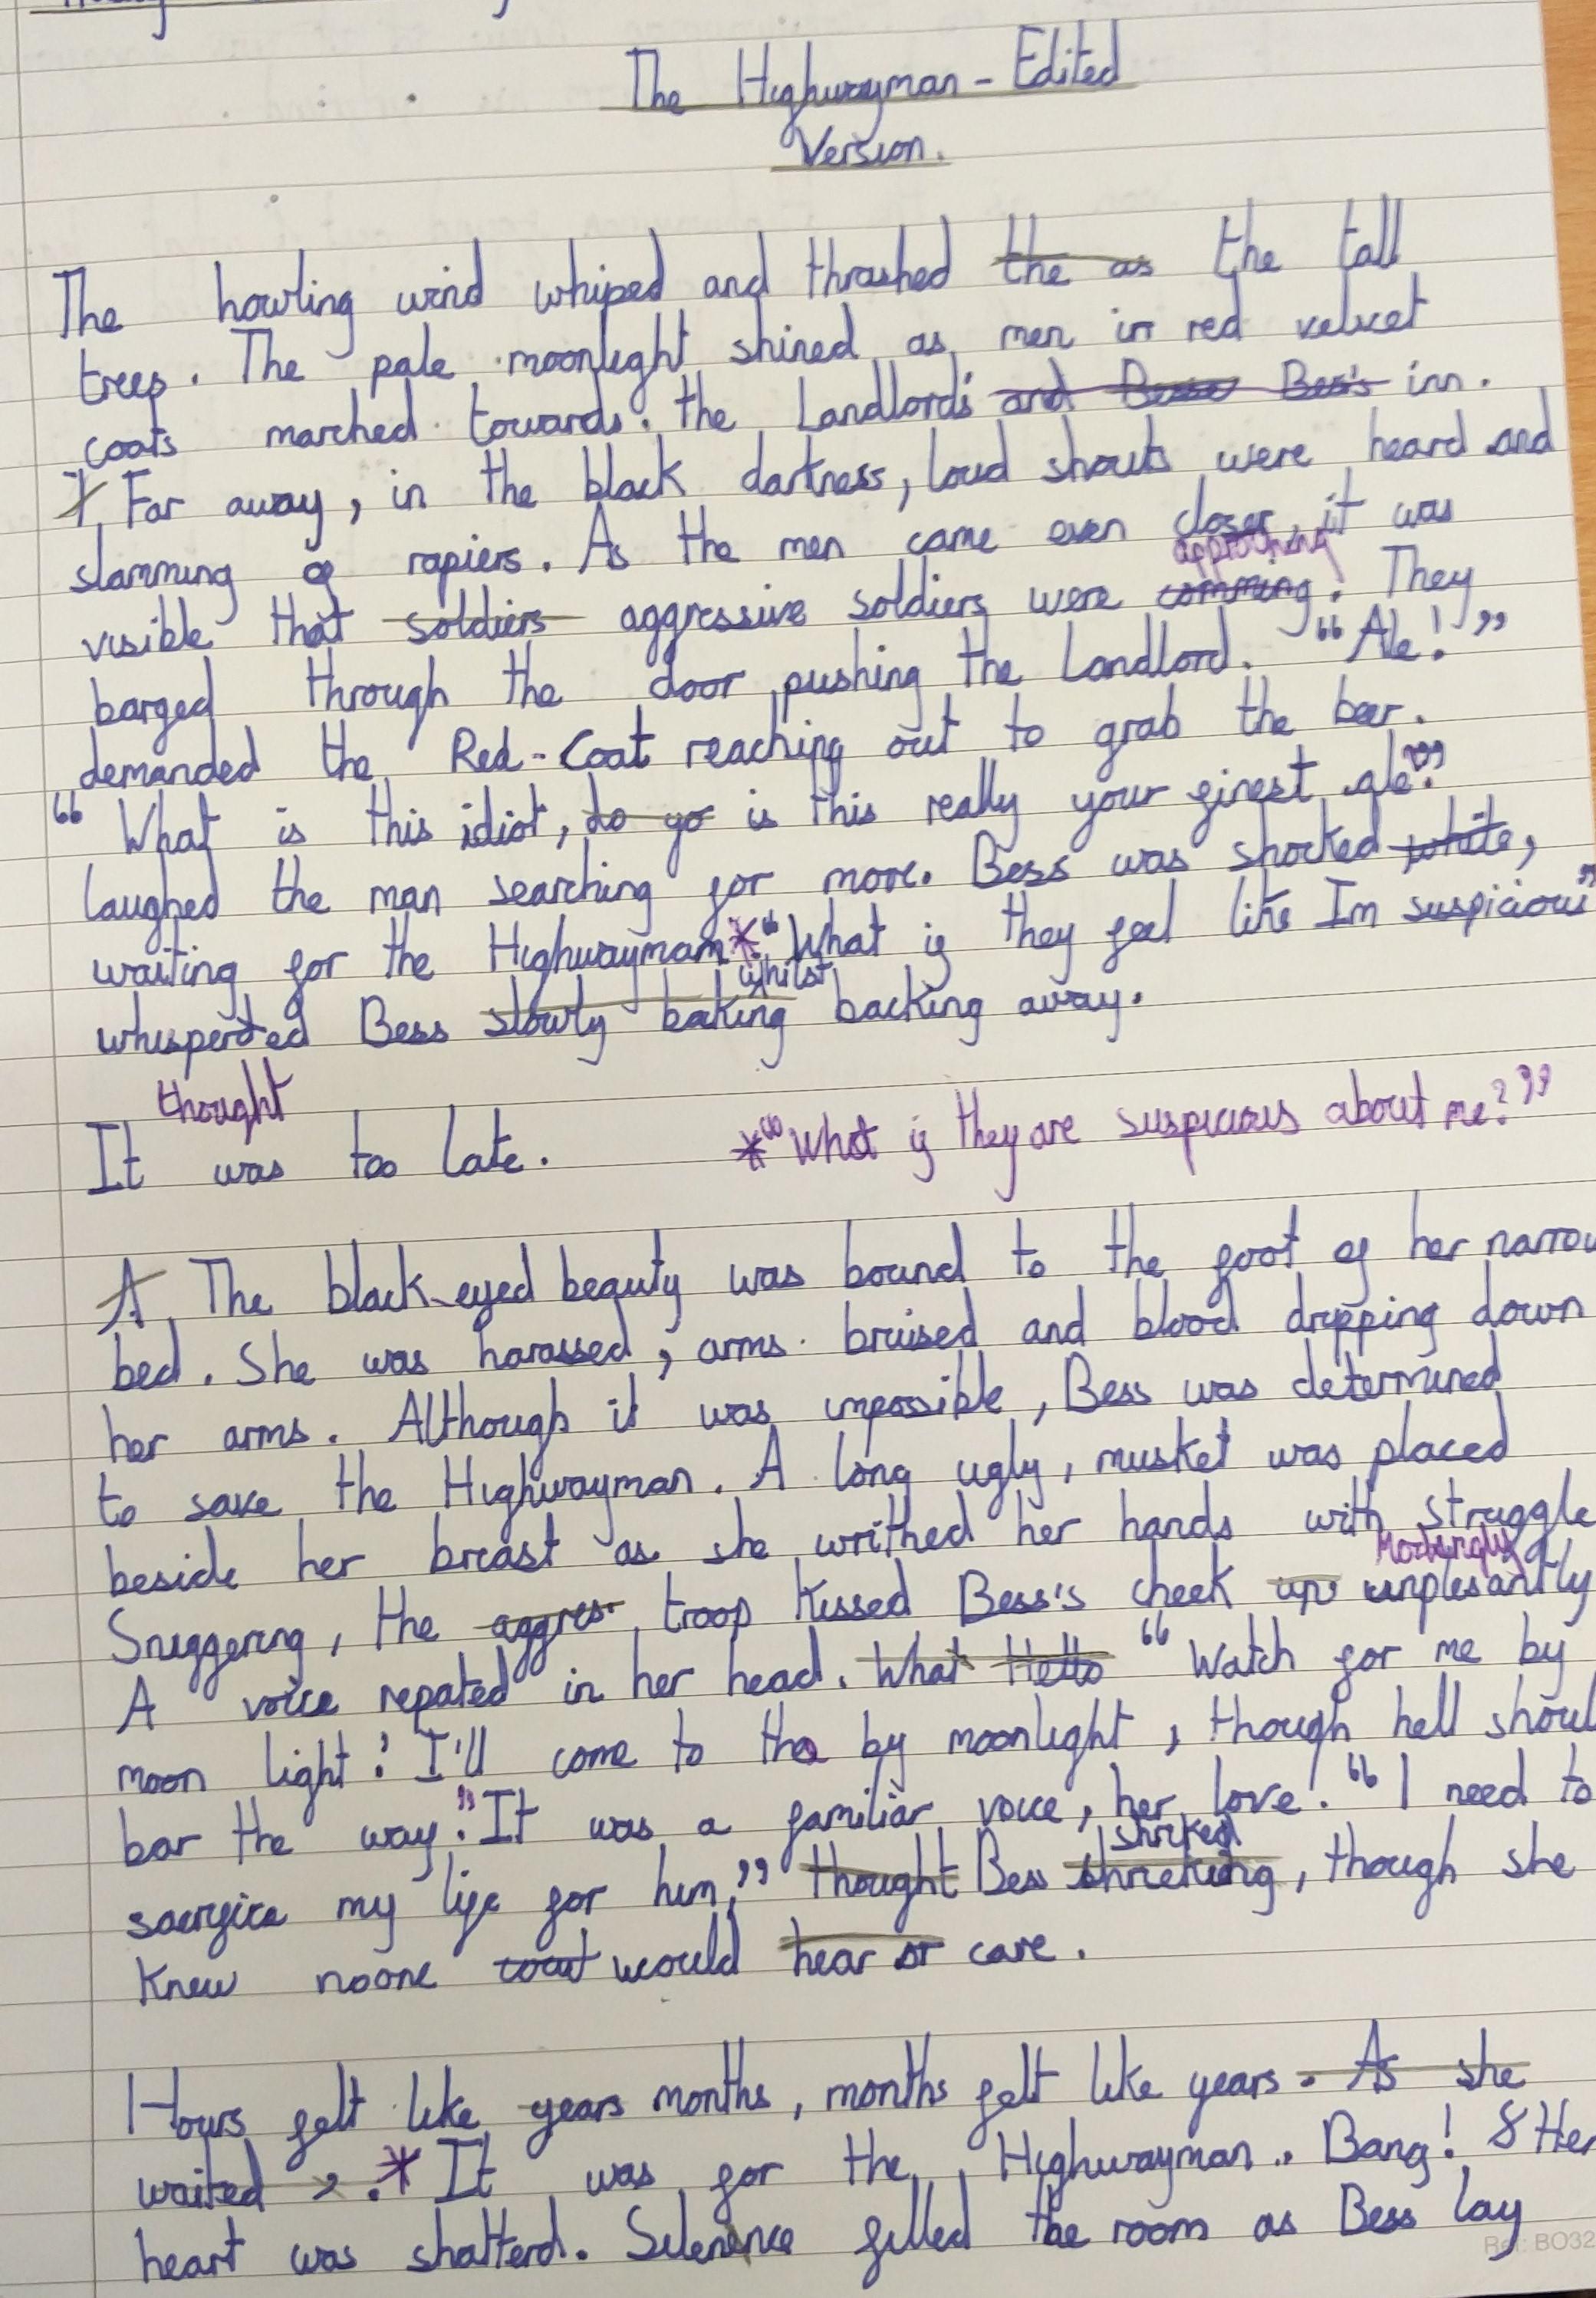 The Highwayman - Edited
Version.
The howling wind whiped and thrashed the as the tall
trees. The pale moonlight shined as men in red velvet
coats marched towards the Landlords' and Besse Bess's inn.
I Far away, in the black darkness, loud shouts were heard and
slamming of rapiers. As the men came even closer, it was
approching
visible that soldiers aggressive soldiers were comming. They
barged through the door pushing the Landlord. "Ale!"
demanded the Red-Coat reaching out to grab the beer.
"What is this idiot, do yo is this really your finest ale?"
laughed the man searching for more. Bess was shocked white,
waiting for the Highwayman* "What if they feel like Im suspicious"
whilst
whisperted Bess slowly baking backing away.
thought
It was too late.
*"What if they are suspicious about me?"
A The black-eyed beauty was bound to the foot of her narrow
bed. She was harassed, arms bruised and blood dripping down
her arms. Although it was impossible, Bess was determined
to save the Highwayman. A long ugly, musket was placed
beside her breast as she writhed her hands with struggle
Mockingly
Sniggering, the aggres troop kissed Bess's cheek up unplesantly
A voice repated in her head. What Hello "Watch for me by
moon light: I'll come to the by moonlight, though hell shoul
bar the way." It was a familiar voice, her love. "I need to
shriked
sacrifice my life for him," thought Bess shrieking, though she
knew noone woul would hear or care.
Hours felt like years months, months felt like years. As she
waited, .* It was for the Highwayman. Bang! Her
heart was shatterd. Silenence filled the room as Bess lay
Ref: BO32